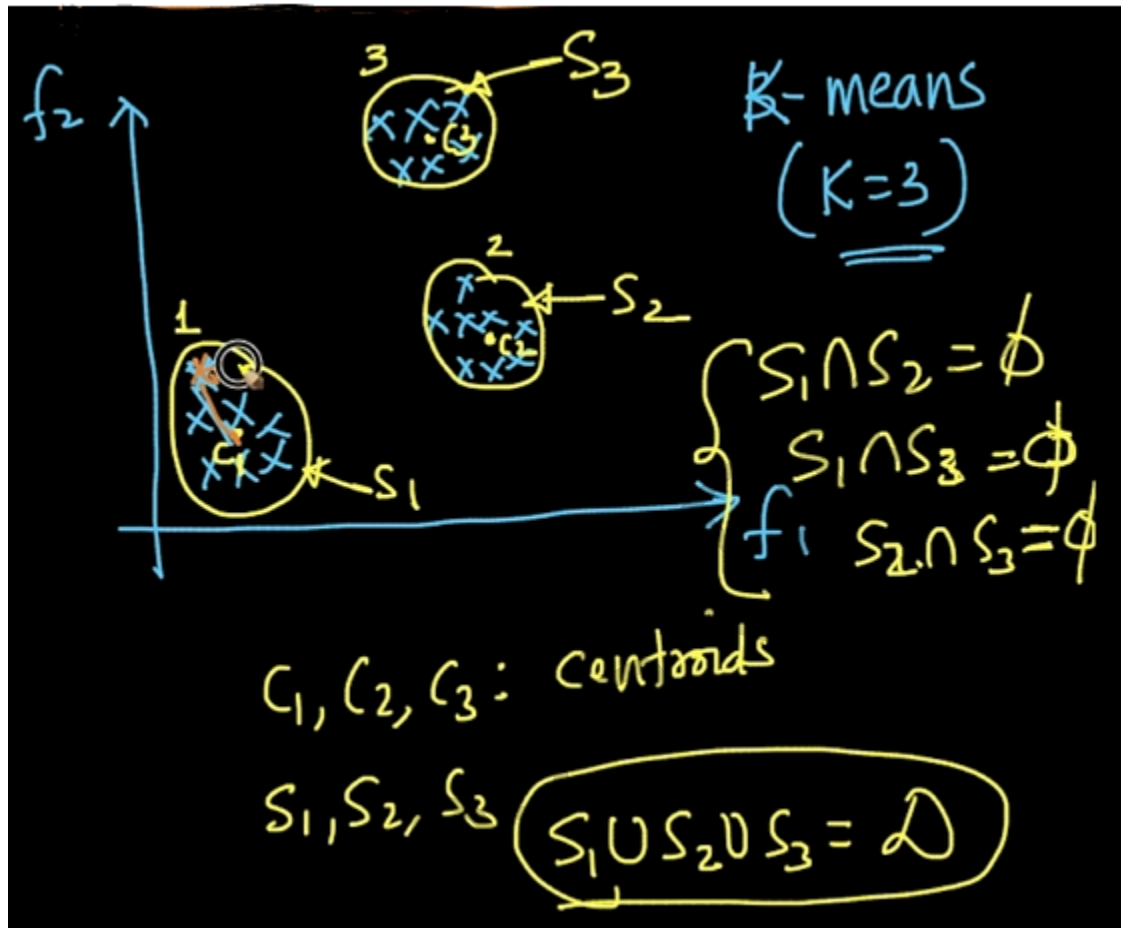 f₂
3
S₃
K-means
(K=3)
C₃
2
S₂
C₂
1
C₁
S₁
f₁
S₁∩S₂=ϕ
S₁∩S₃=ϕ
S₂∩S₃=ϕ
C₁, C₂, C₃: centroids
S₁, S₂, S₃
S₁∪S₂∪S₃=D